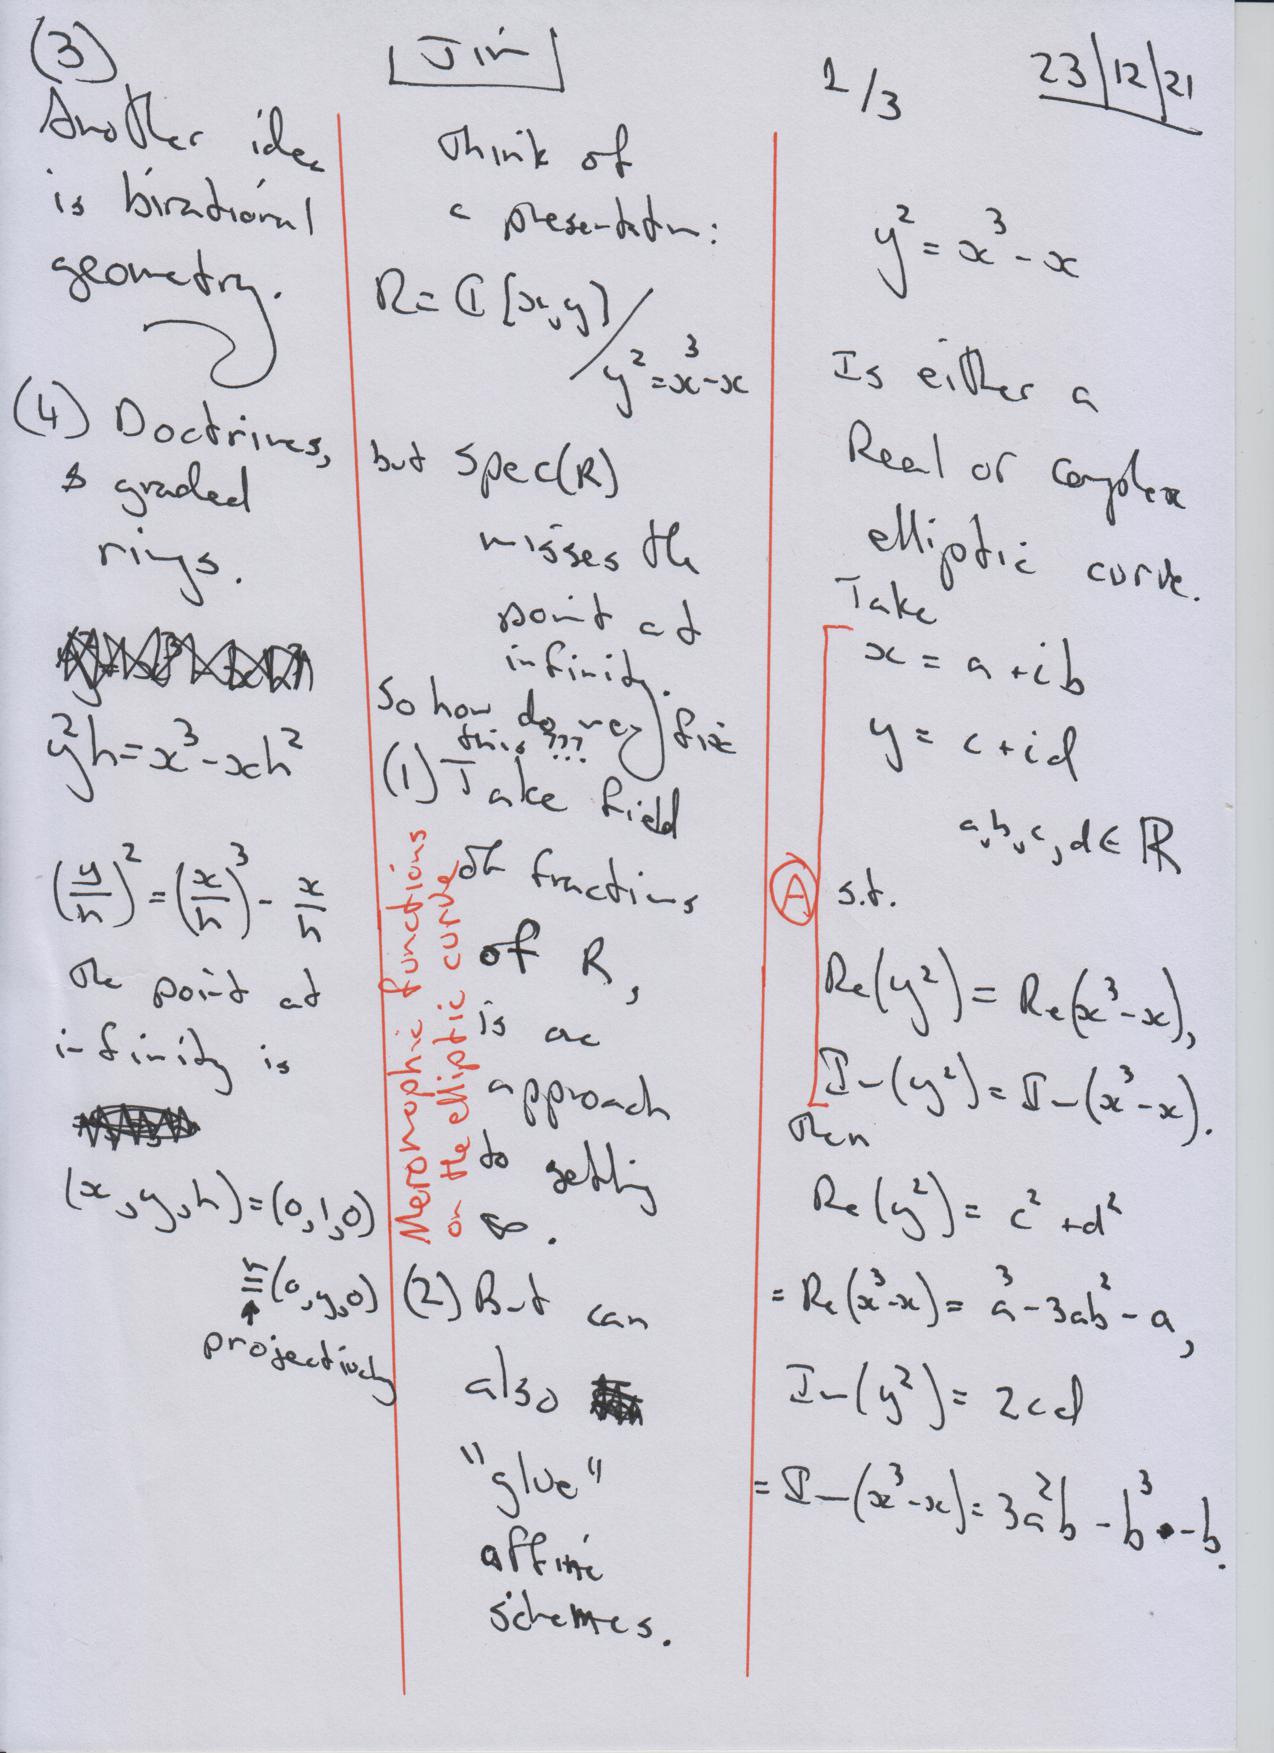 (3)
Another idea
is birational
geometry.
(4) Doctrines,
& graded
rings.
y²h = x³ - xh²
(y/h)² = (x/h)³ - x/h
the point at
infinity is
(x, y, h) = (0, 1, 0)
≅ (0, y, 0)
projectively
Jim
think of
a presentatn:
R = ℂ[x, y] / y² = x³ - x
but Spec(R)
misses the
point at
infinity.
So how do we fix
this???
(1) Take field
of fractions
of R,
is one
approach
to getting
∞.
Meromophic functions
on the elliptic curve
(2) But can
also
"glue"
affine
schemes.
1/3
23/12/21
y² = x³ - x
Is either a
Real or complex
elliptic curve.
Take
x = a + ib
y = c + id
a, b, c, d ∈ ℝ
(A) s.t.
Re(y²) = Re(x³ - x),
Im(y²) = Im(x³ - x).
then
Re(y²) = c² + d²
= Re(x³ - x) = a³ - 3ab² - a,
Im(y²) = 2cd
= Im(x³ - x) = 3a²b - b³ - b.